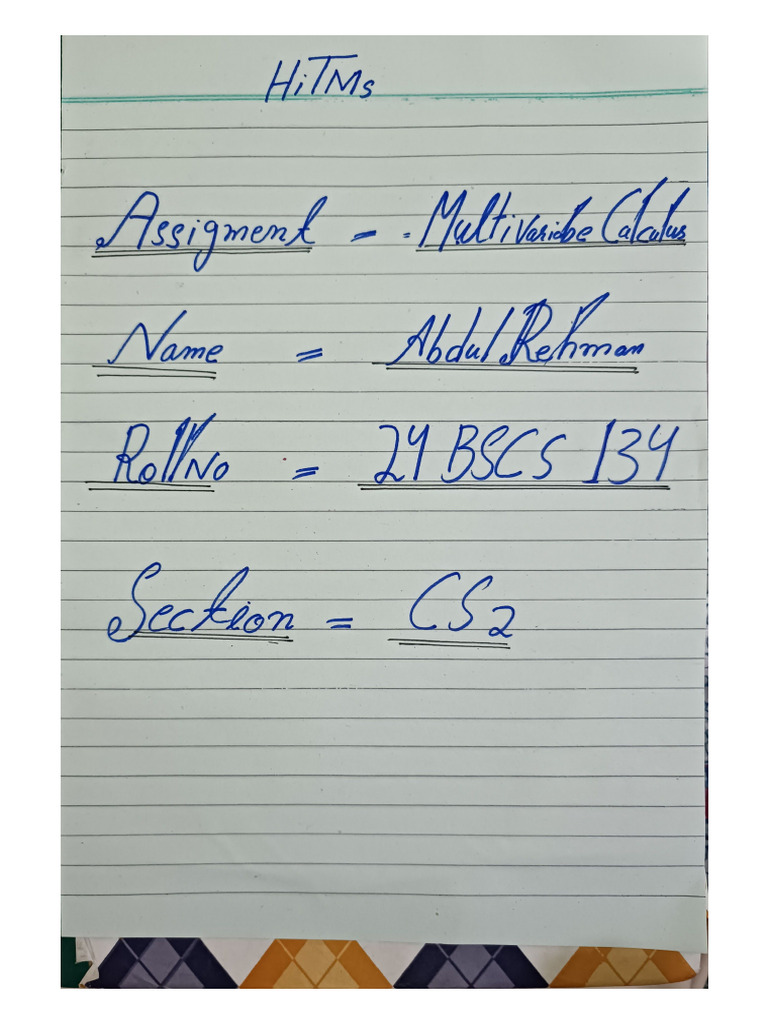 HiTMs
Assigment = Multivariabe Calculus
Name = Abdul Rehman
Roll No = 24 BSCS 134
Section = CS2